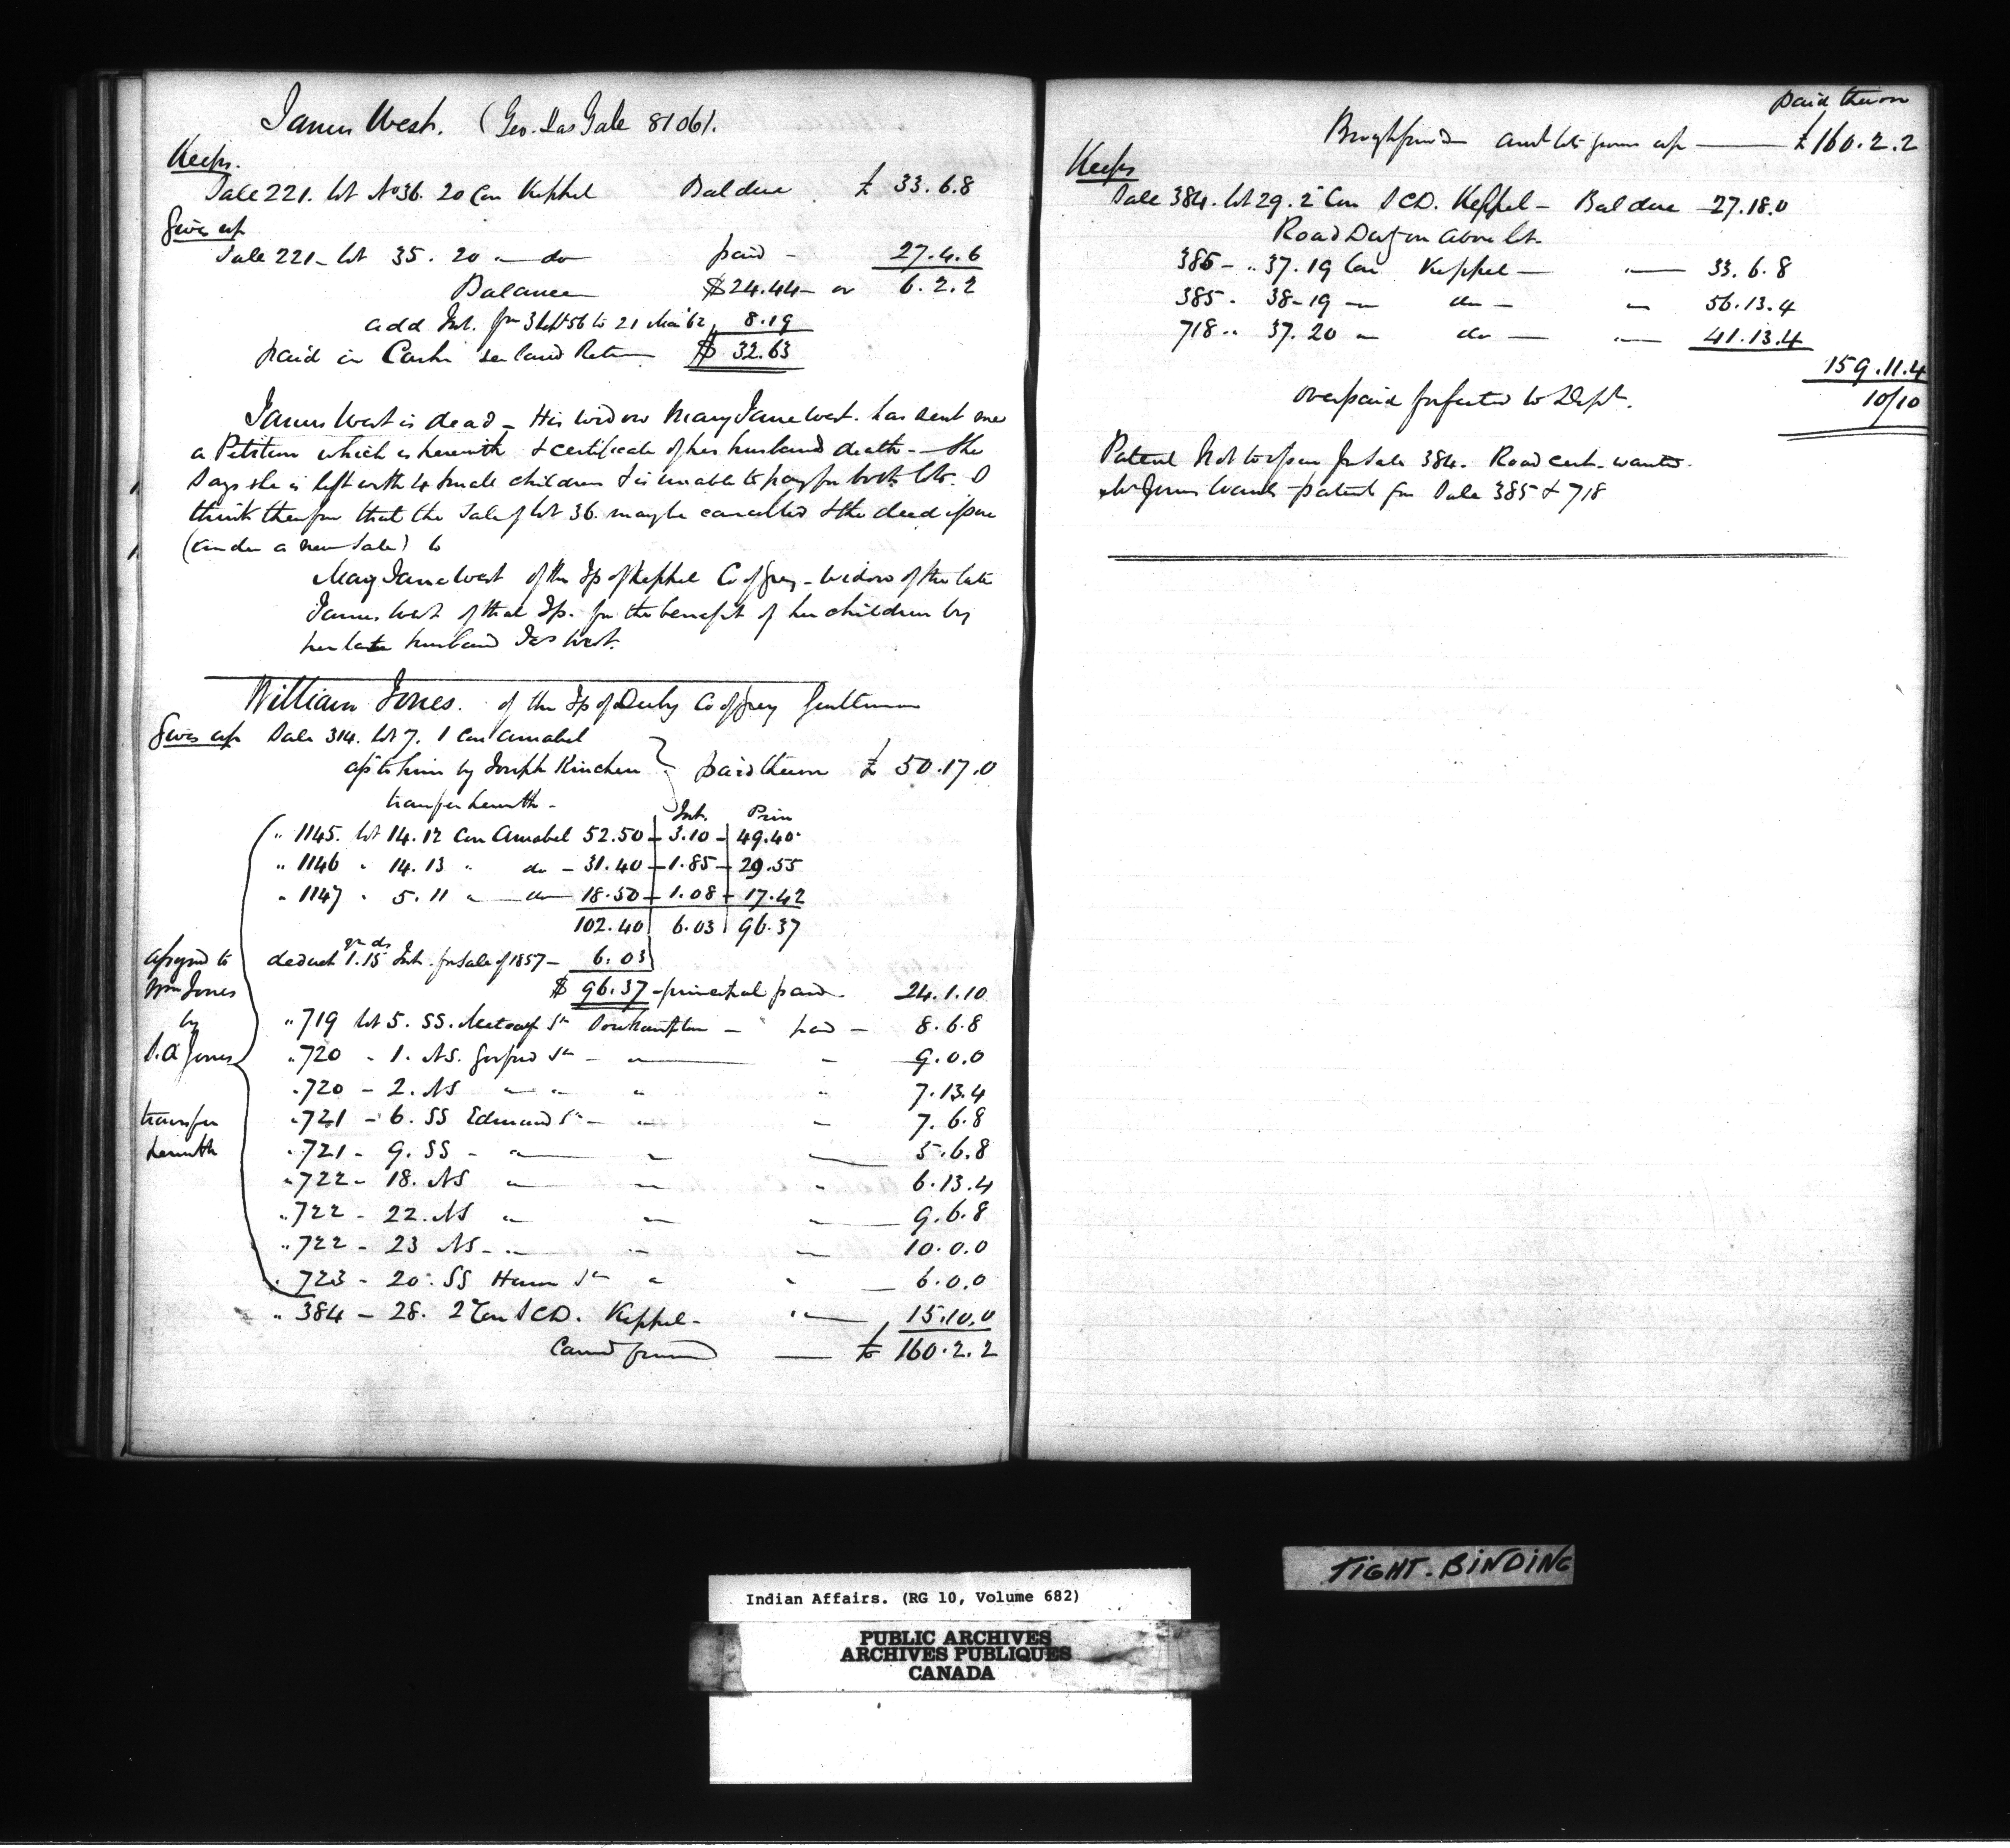 James West. (Geo. Jas Gale 8106).
Keeps.
Sale 221. lot No 36. 20 Con Keppel Bal due £ 33.6.8
Gives up
Sale 221 - lot 35. 20 " do paid - 27.4.6
Balance $24.44 - or 6.2.2
add Int. fm 3 Sept 56 to 21 Mar 62, 8.19
paid in Cash see land Return $ 32.63
James West is dead - His widow Mary Jane West. has sent me
a Petition which is herewith & certificate of her husband death - She
says she is left with 4 small children & is unable to pay for both lots. I
think therefor that the Sale of lot 36. may be cancelled & the deed issue
(under a new Sale) to
Mary Jane West of the Tp of Keppel Co of Grey - widow of the late
James West of that Tp. for the benefit of her children by
her late husband Jas West.
William Jones. of the Tp of Derby Co of Grey Gentleman
Gives up Sale 314. lot 7. 1 Con Amabel
assd to him by Joseph Kinchen } paid thereon £ 50.17.0
transfer herewith -
Int. Prin
" 1145. lot 14. 12 Con Amabel 52.50 - 3.10 - 49.40
" 1146 " 14. 13 " do - 31.40 - 1.85 - 29.55
" 1147 " 5. 11 " do 18.50 - 1.08 - 17.42
102.40 6.03 96.37
deduct 1 yr. 15 ds Int. for Sale of 1857 - 6.03
$ 96.37 - principal paid - 24.1.10
assigned to
Wm Jones
by
S. A Jones
transfer
herewith
" 719 lot 5. SS. Metcalf St Southampton - paid - 8.6.8
" 720 " 1. NS. Gosford St - " " 9.0.0
" 720 - 2. NS " " " " 7.13.4
" 721 - 6. SS Edmund St - " - 7.6.8
" 721 - 9. SS - " " 5.6.8
" 722 - 18. NS " " " 6.13.4
" 722 - 22. NS " " 9.6.8
" 722 - 23 NS - " " " 10.0.0
" 723 - 20. SS Huron St " " 6.0.0
" 384 - 28. 2 Con SCD. Keppel - " 15.10.0
Carrd forwd £ 160.2.2
paid thereon
Brought forwd amt lots given up £160.2.2
Keeps
Sale 384. lot 29. 2 Con SCD. Keppel - Bal due - 27.18.0
Road Duty on above lot.
385 - " 37. 19 Con Keppel - " 33.6.8
385 - 38 - 19 " do - " 56.13.4
718 " 37. 20 " do - " 41.13.4
159.11.4
overpaid forfeited to Dept. 10/10
Patent Not to issue for Sale 384. Road cert. wanted.
Mr Jones wants patent for Sale 385 & 718
TIGHT. BINDING
Indian Affairs. (RG 10, Volume 682)
PUBLIC ARCHIVES
ARCHIVES PUBLIQUES
CANADA